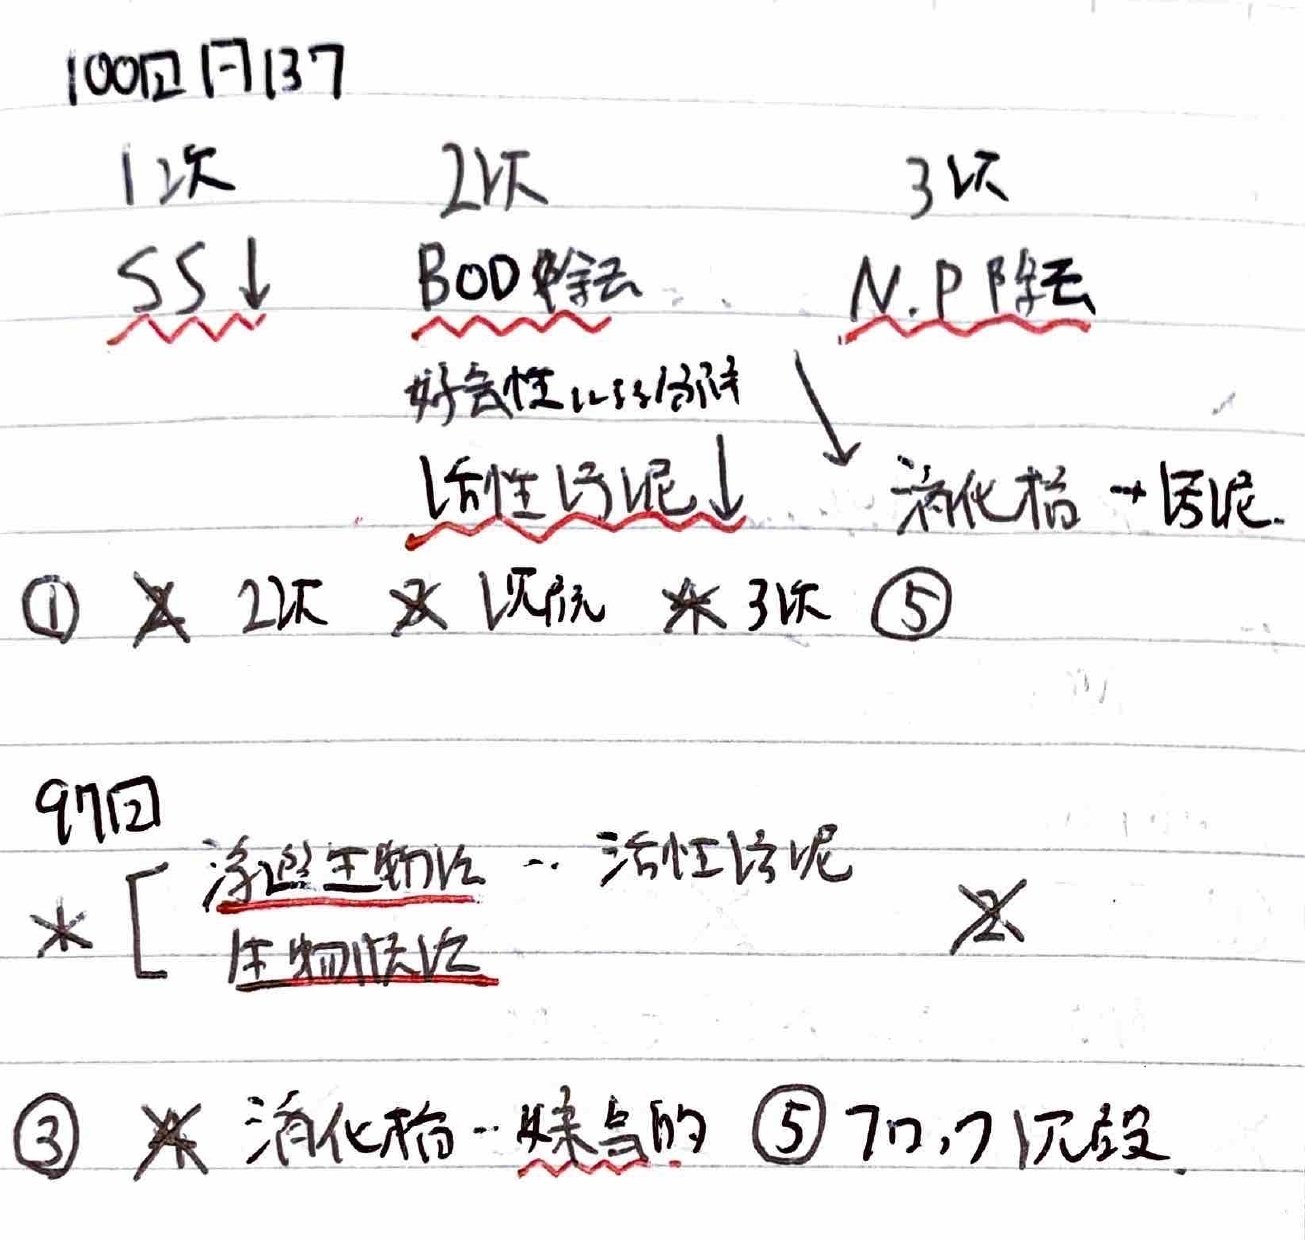 100回 問137
1次 2次 3次
SS↓ BOD除去 N.P除去
好気性による分解 ↓
活性汚泥↓ 消化槽→汚泥.
① 2 2次 3 沈殿 4 3次 ⑤
97回
* [ 浮遊生物法 … 活性汚泥
生物膜法 2
③ 4 消化槽… 嫌気的 ⑤ フロック沈殿.